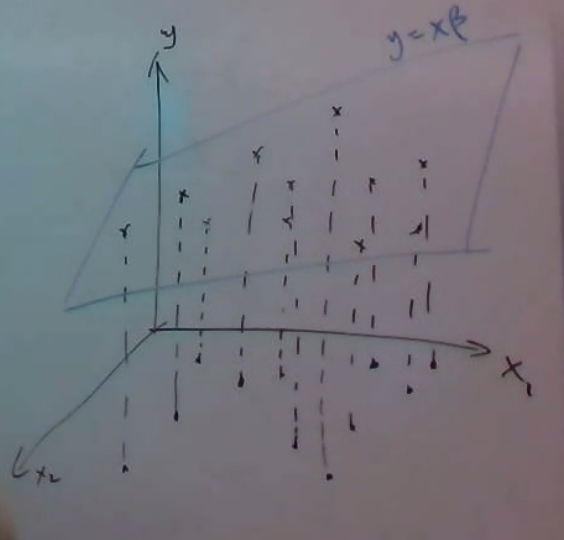 y
y = xβ
x₁
x₂